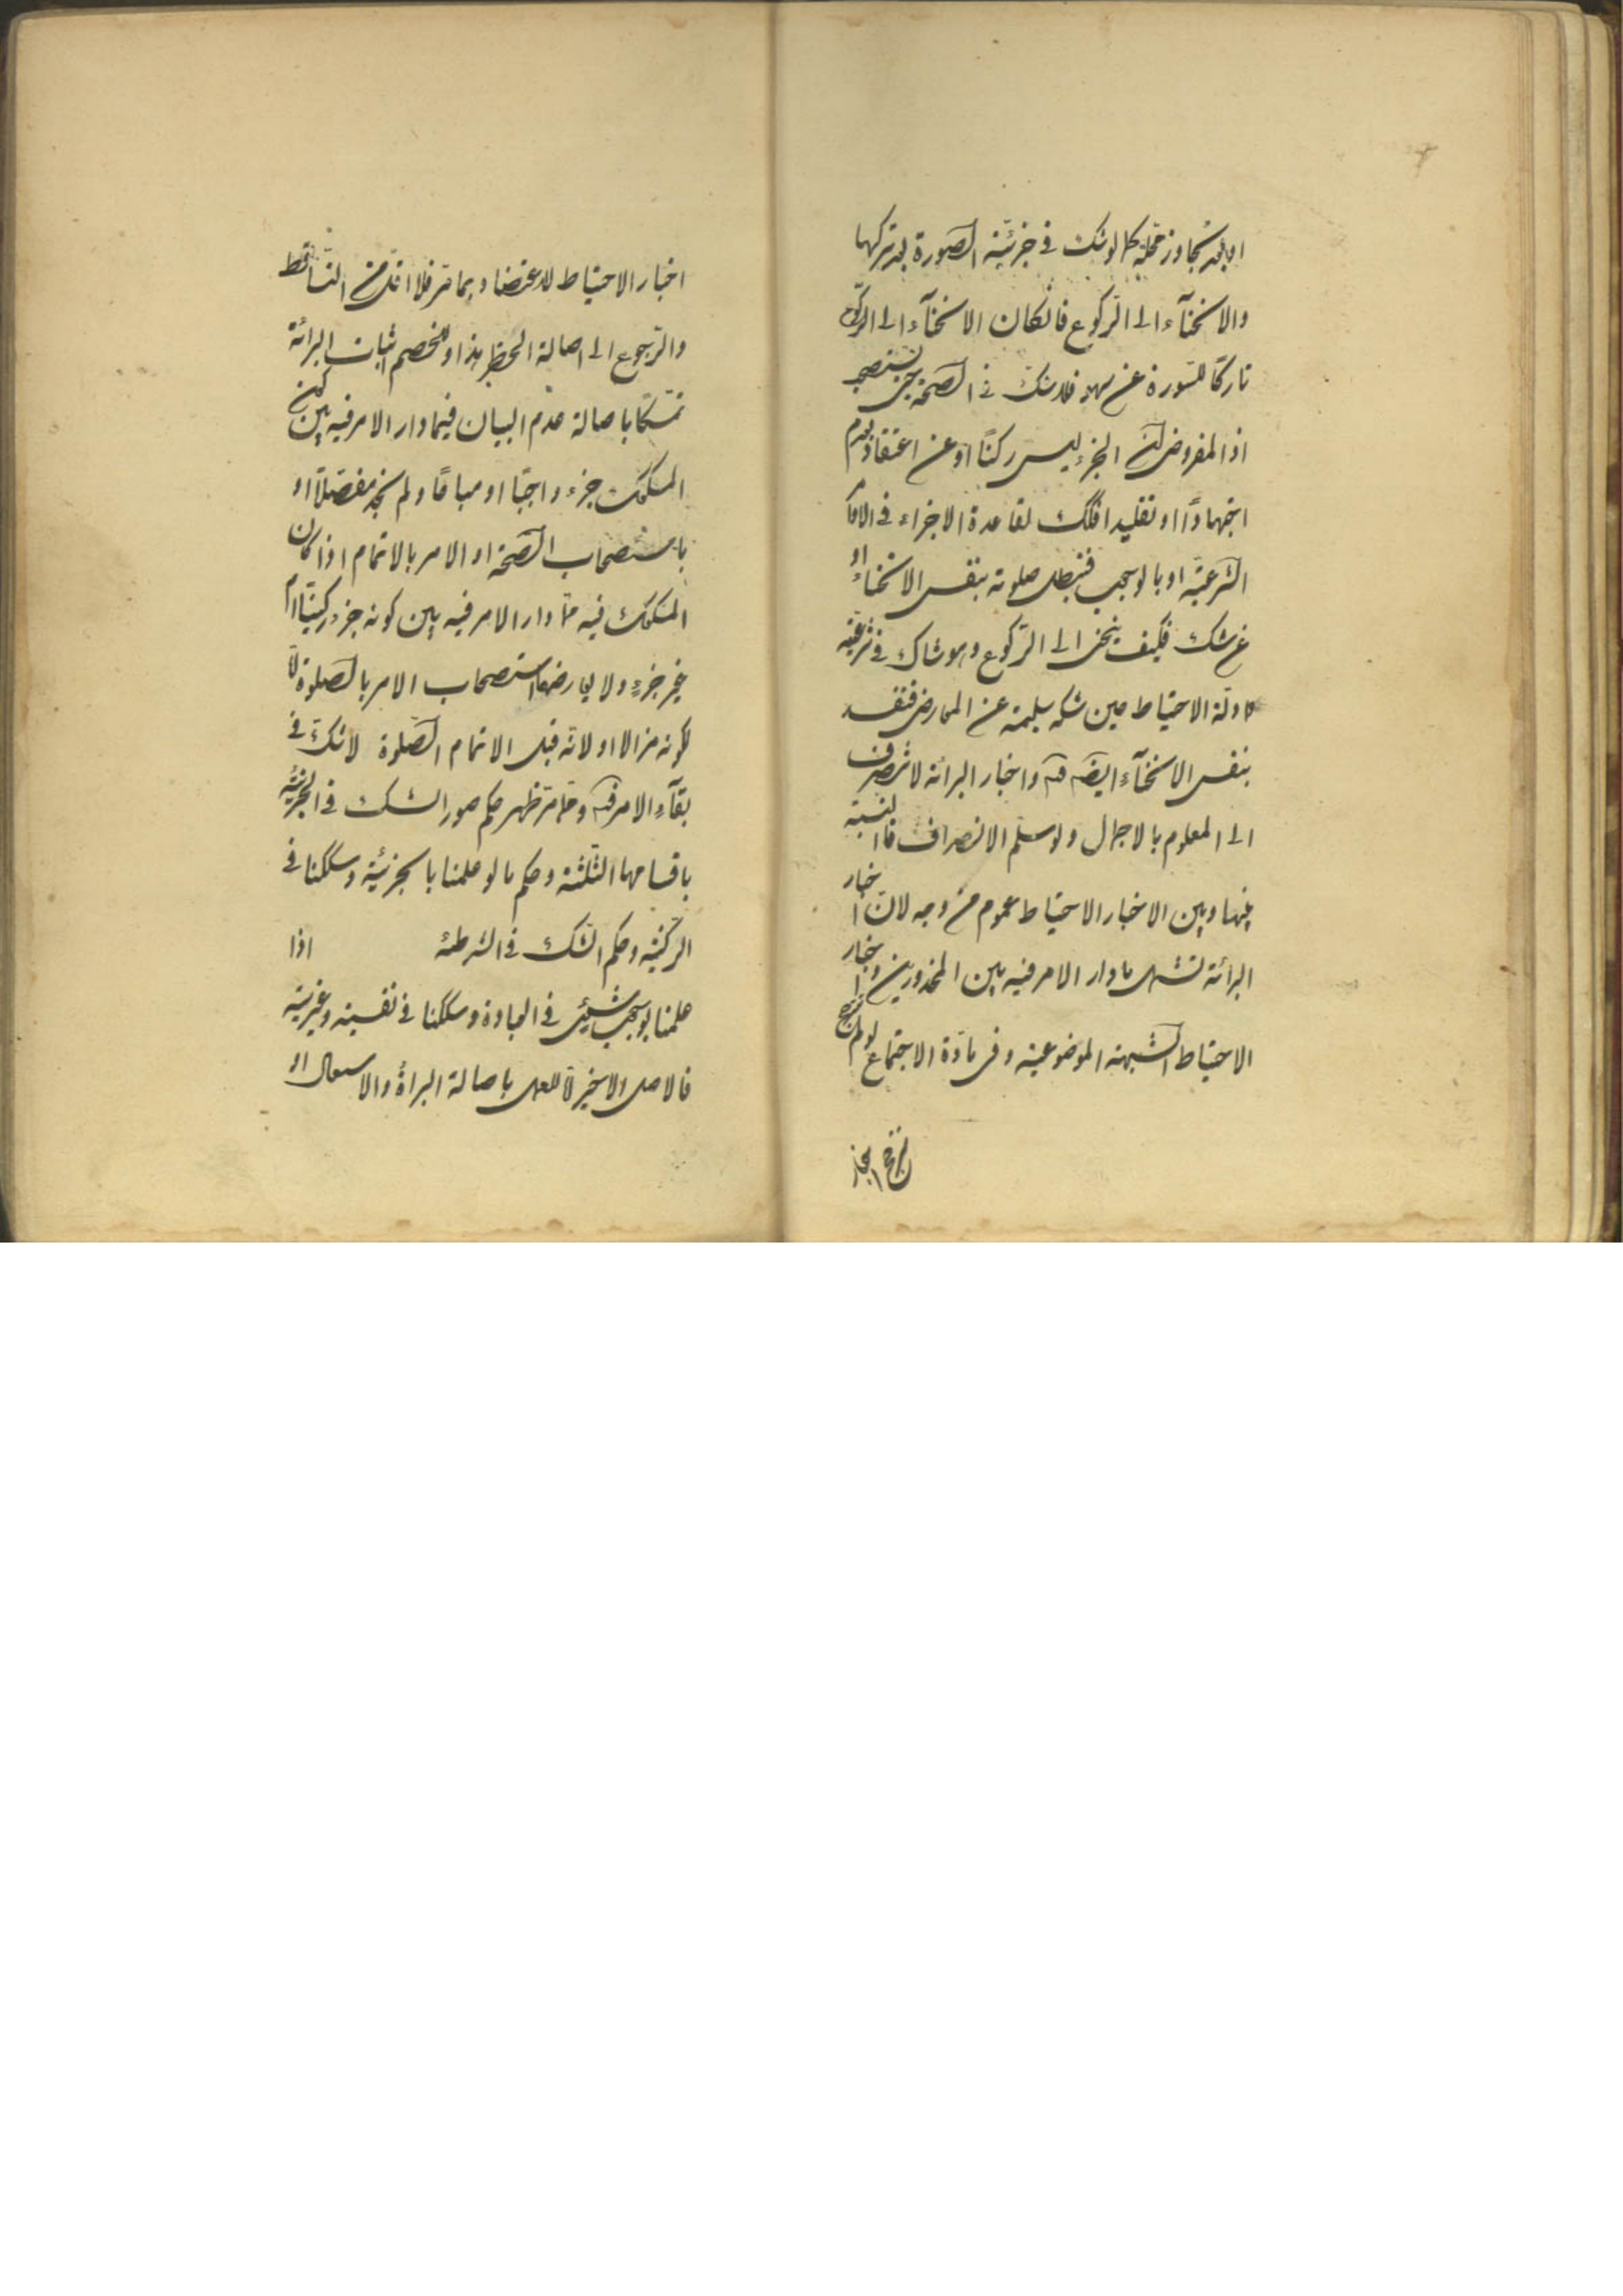 او بعد تجاوز محله كما لو شك في جزئية السورة بعد تركها
والانحناء الى الركوع فان كان الانحناء الى الركوع
تاركا للسورة عن سهو فلا شك في الصحة حتى يستصحب
اذ المفروض ان الجزء ليس ركنا او عن اعتقاد بعدم
اجتهادا او تقليدا فكك لقاعدة الاجزاء في الاحكام
الشرعية او بالوجوب فتبطل صلوته بنفس الانحناء او
عن شك فكيف ينحنى الى الركوع وهو شاك في شرعيته
وادلة الاحتياط حين شكه سليمة عن المعارض فتفسد
بنفس الانحناء ايضا فت واخبار البرائة لا تنصرف
الى المعلوم بالاجمال ولو سلم الانصراف فالنسبة
بينها وبين الاخبار الاحتياط عموم من وجه لان اخبار
البرائة تشمل ما دار الامر فيه بين المحذورين واخبار
الاحتياط الشبهة الموضوعية وفى مادة الاجتماع لو لم نرجح
نرجح اخبار
اخبار الاحتياط للاعتضاد بما مر فلا اقل من التساقط
والرجوع الى اصالة الحظر هذا وللخصم اثبات البرائة
تمسكا باصالة عدم البيان فيما دار الامر فيه بين كون
المشكوك جزء واجبا او مباحا ولم نجد مفصلا او
باستصحاب الصحة او الامر بالاتمام اذا كان
المشكوك فيه مما دار الامر فيه بين كونه جزء ركنيا ام
غير جزء ولا يعارضها استصحاب الامر بالصلوة لا
لكونه مزالا او لانه قبل الاتمام الصلوة لا شك في
بقاء الامر فت ومما مر ظهر حكم صور الشك في الجزئية
باقسامها الثلثة وحكم ما لو علمنا بالجزئية وشككنا في
الركنية وحكم الشك في الشرطية اذا
علمنا بوجوب شيئ في العبادة وشككنا في نفسيته وغيريته
فالاصل الاخير للعمل باصالة البراة والا او